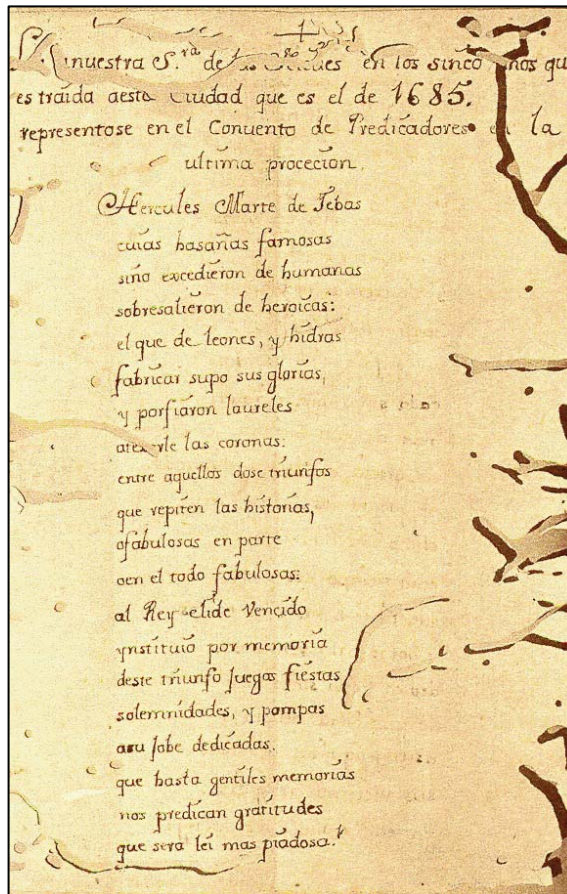 nuestra S.ra de en los sinco que
es traida aesta Ciudad que es el de 1685.
representose en el Convento de Predicadores en la
ultima procecion.
Hercules Marte de Tebas
cuias hasañas famosas
sino excedieron de humanas
sobresalieron de heroicas:
el que de leones, y hidras
fabricar supo sus glorias,
y porfiaron laureles
atexerle las coronas:
entre aquellos dose triunfos
que repiten las historias,
ofabulosas en parte
oen el todo fabulosas:
al Rey elide vencido
ynstituio por memoria
deste triunfo juegos fiestas
solemnidades, y pompas
asu Jobe dedicadas,
que hasta gentiles memorias
nos predican gratitudes
que sera lei mas piadosa.